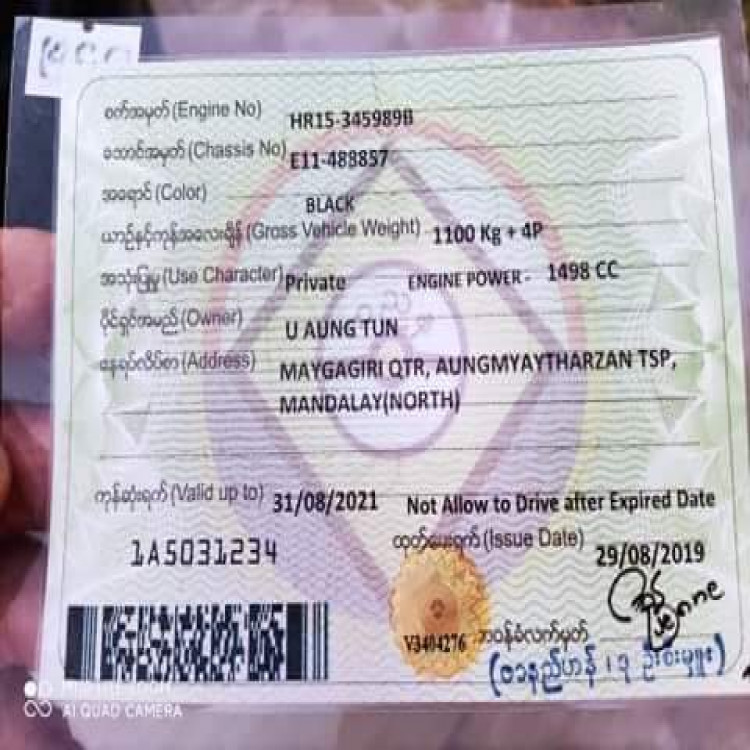 စက်အမှတ် (Engine No) HR15-345989B
ဘောင်အမှတ် (Chassis No) E11-488857
အရောင် (Color) BLACK
ယာဉ်နှင့်ကုန်အလေးချိန် (Gross Vehicle Weight) 1100 Kg + 4P
အသုံးပြုမှု (Use Character) Private ENGINE POWER - 1498 CC
ပိုင်ရှင်အမည် (Owner) U AUNG TUN
နေရပ်လိပ်စာ (Address) MAYGAGIRI QTR, AUNGMYAYTHARZAN TSP,
MANDALAY(NORTH)
ကုန်ဆုံးရက် (Valid up to) 31/08/2021 Not Allow to Drive after Expired Date
1A5031234 ထုတ်ပေးရက် (Issue Date) 29/08/2019
V3404276 တာဝန်ခံလက်မှတ်
AI QUAD CAMERA